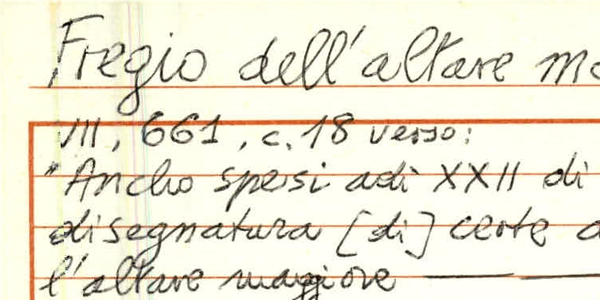 Fregio dell'altare
VII, 661, c. 18 verso:
"Ancho spesi adì XXII di
disegnatura [di] certe
l'altare maggiore